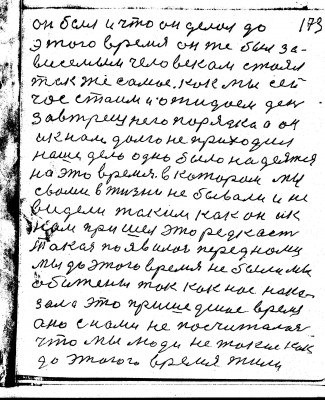 он был и что он делал до 173
этого время он же был за-
висемым человекам стоял
так же самое, как мы сей
час стоим и ожидаем ден
завтрешнего порядка а он
ик нам долго не приходил
наше дело одно было надеятся
на это время в котором мы
своим в жизни не бывали и не
видели таким как он ик
нам пришел это редкаст
такая появилася передноми
мы до этого время не были мы
обижены так как нас нака
зала это пришедшие время
оно с нами не посчиталося
что мы люди не такие как
до этогого время жили